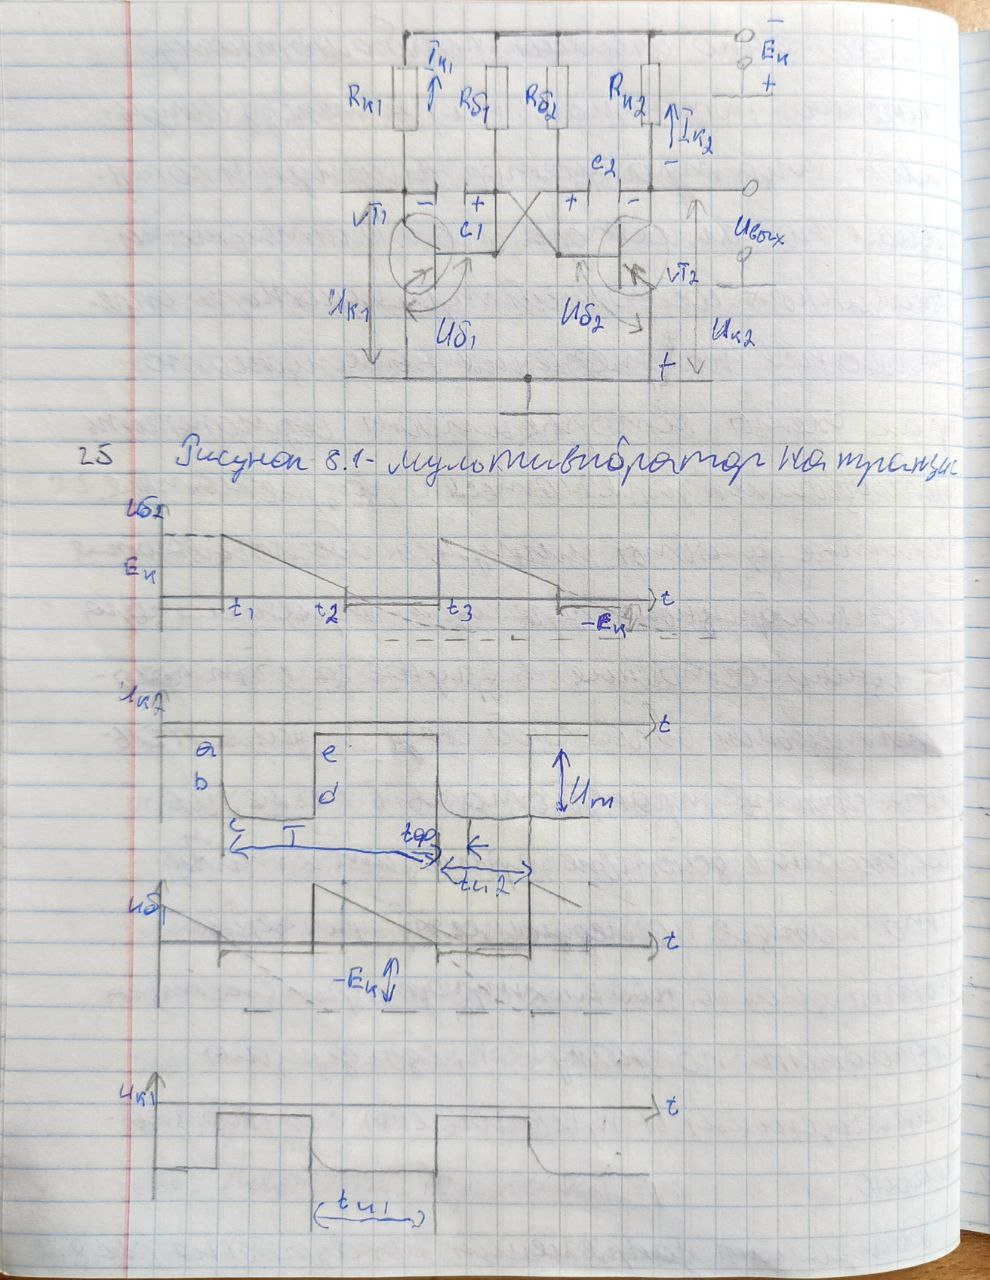 − Eк
Iк1
Rк1 Rб1 Rб2 Rк2
+
Iк2
C2 −
− + + −
VT1 C1 Uвых
VT2
Uк1 Uб1 Uб2 Uк2
+
25 Рисунок 8.1- мультивибратор на транзис
Uб2
Eк
t1 t2 t3 t
-Eк
Uк2 t
a e
b d Um
c T tф
tи2
Uб1 t
-Eк
Uк1 t
tи1